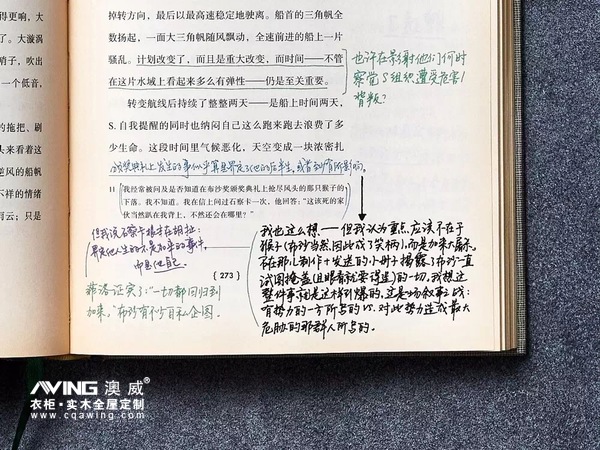 得更响，大
了。大漩涡
哨子，吹出
一个低音，
的拖把、刷
头来看着这
逆风的船帆
不祥的情绪
阿云；只是
掉转方向，最后以最高速稳定地驶离。船首的三角帆全
数扬起，一面大三角帆随风飘动，全速前进的船上一片
骚乱。计划改变了，而且是重大改变，而时间——不管
在这片水域上看起来多么有弹性——仍是至关重要。
转变航线后持续了整整两天——是船上时间两天，
S.自我提醒的同时也纳闷自己这么跑来跑去浪费了多
少生命。这段时间里气候恶化，天空变成一块浓密扎
也许在影射他们何时
察觉S组织遭受危害/
背叛？
11 我经常被问及是否知道在布沙奖颁奖典礼上抢尽风头的那只猴子的
下落。我不知道。我在信上问过石察卡一次，他回答：“这该死的家
伙当然趴在我背上，不然还会在哪里？”
{ 273 }
我也这么想——但我认为重点应该不在于
猴子(布沙当然因此成了笑柄)，而是加来大屠杀。
在那儿制作+发送的小册子揭露了布沙一直
试图掩盖(且眼看就要得逞)的一切。我想这
整件事就是这样引爆的。这是场叙事之战：
有势力的一方所占的 vs. 对此势力造成最大
危胁的那群人所占的。
但我说石察卡根本在胡扯：
界定他人生的不是加来的事件，
而是他自己。
菲洛证实了：“一切都回归到
加来。”布沙有不少自私企图。
AWING 澳威®
衣柜·实木全屋定制
www.cqawing.com